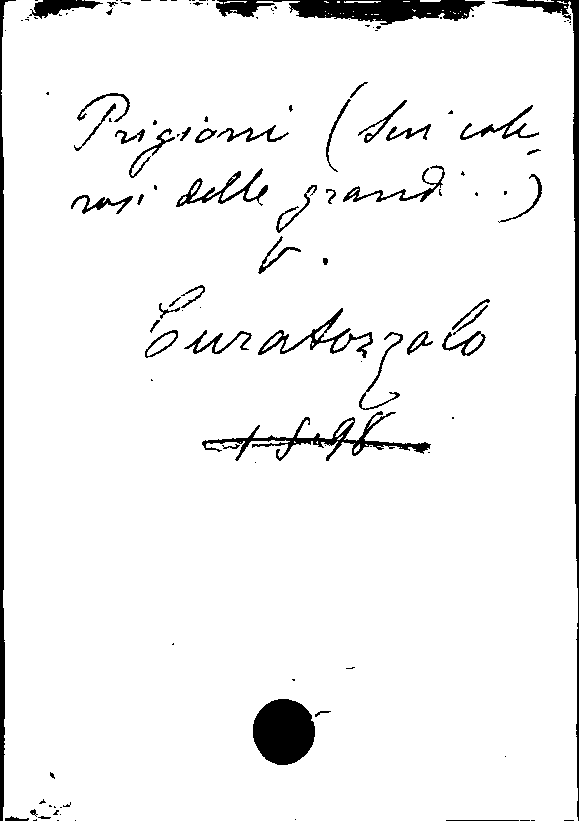 Prigioni (Sui cole-
rosi delle grandi ...)
v.
Curatozzolo
1-5-98